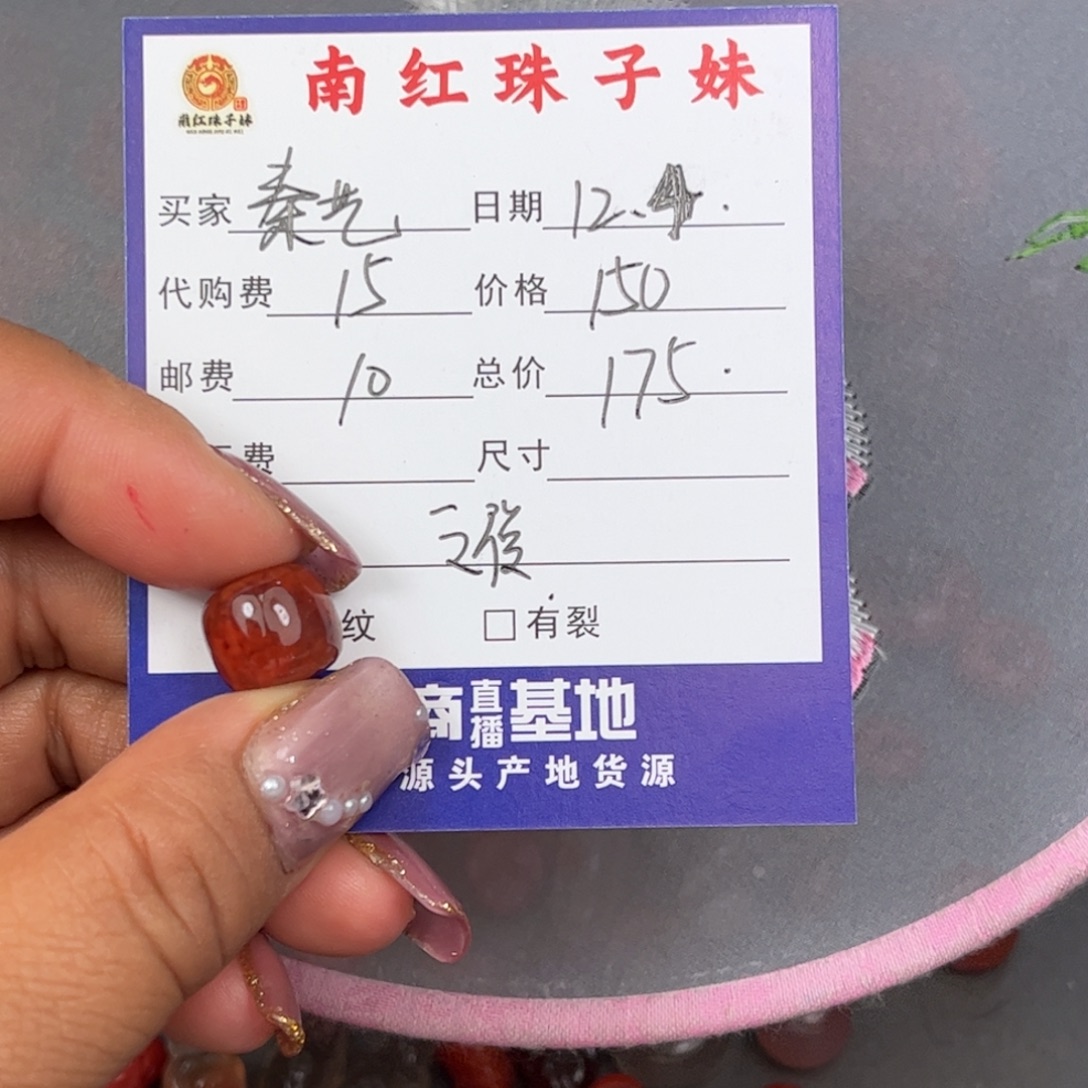 南红珠子妹
南红珠子妹
买家 秦艺 日期 12.
代购费 15 价格 150
邮费 10 总价 175.
费 尺寸
纹 □有裂
商直播基地
源头产地货源